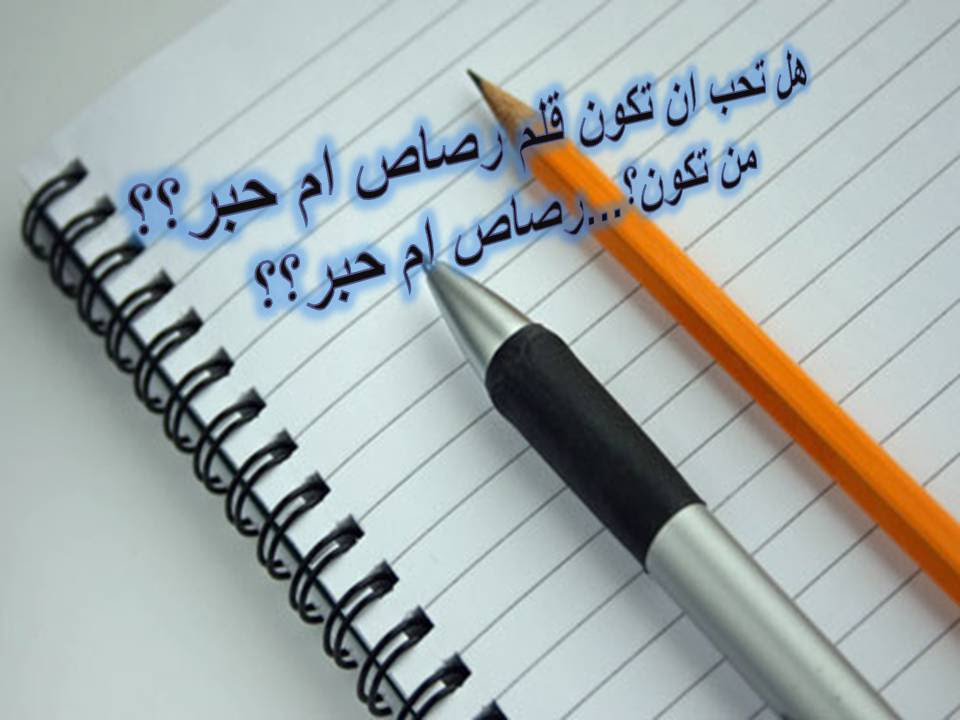 هل تحب ان تكون قلم رصاص ام حبر؟؟
من تكون؟...رصاص ام حبر؟؟